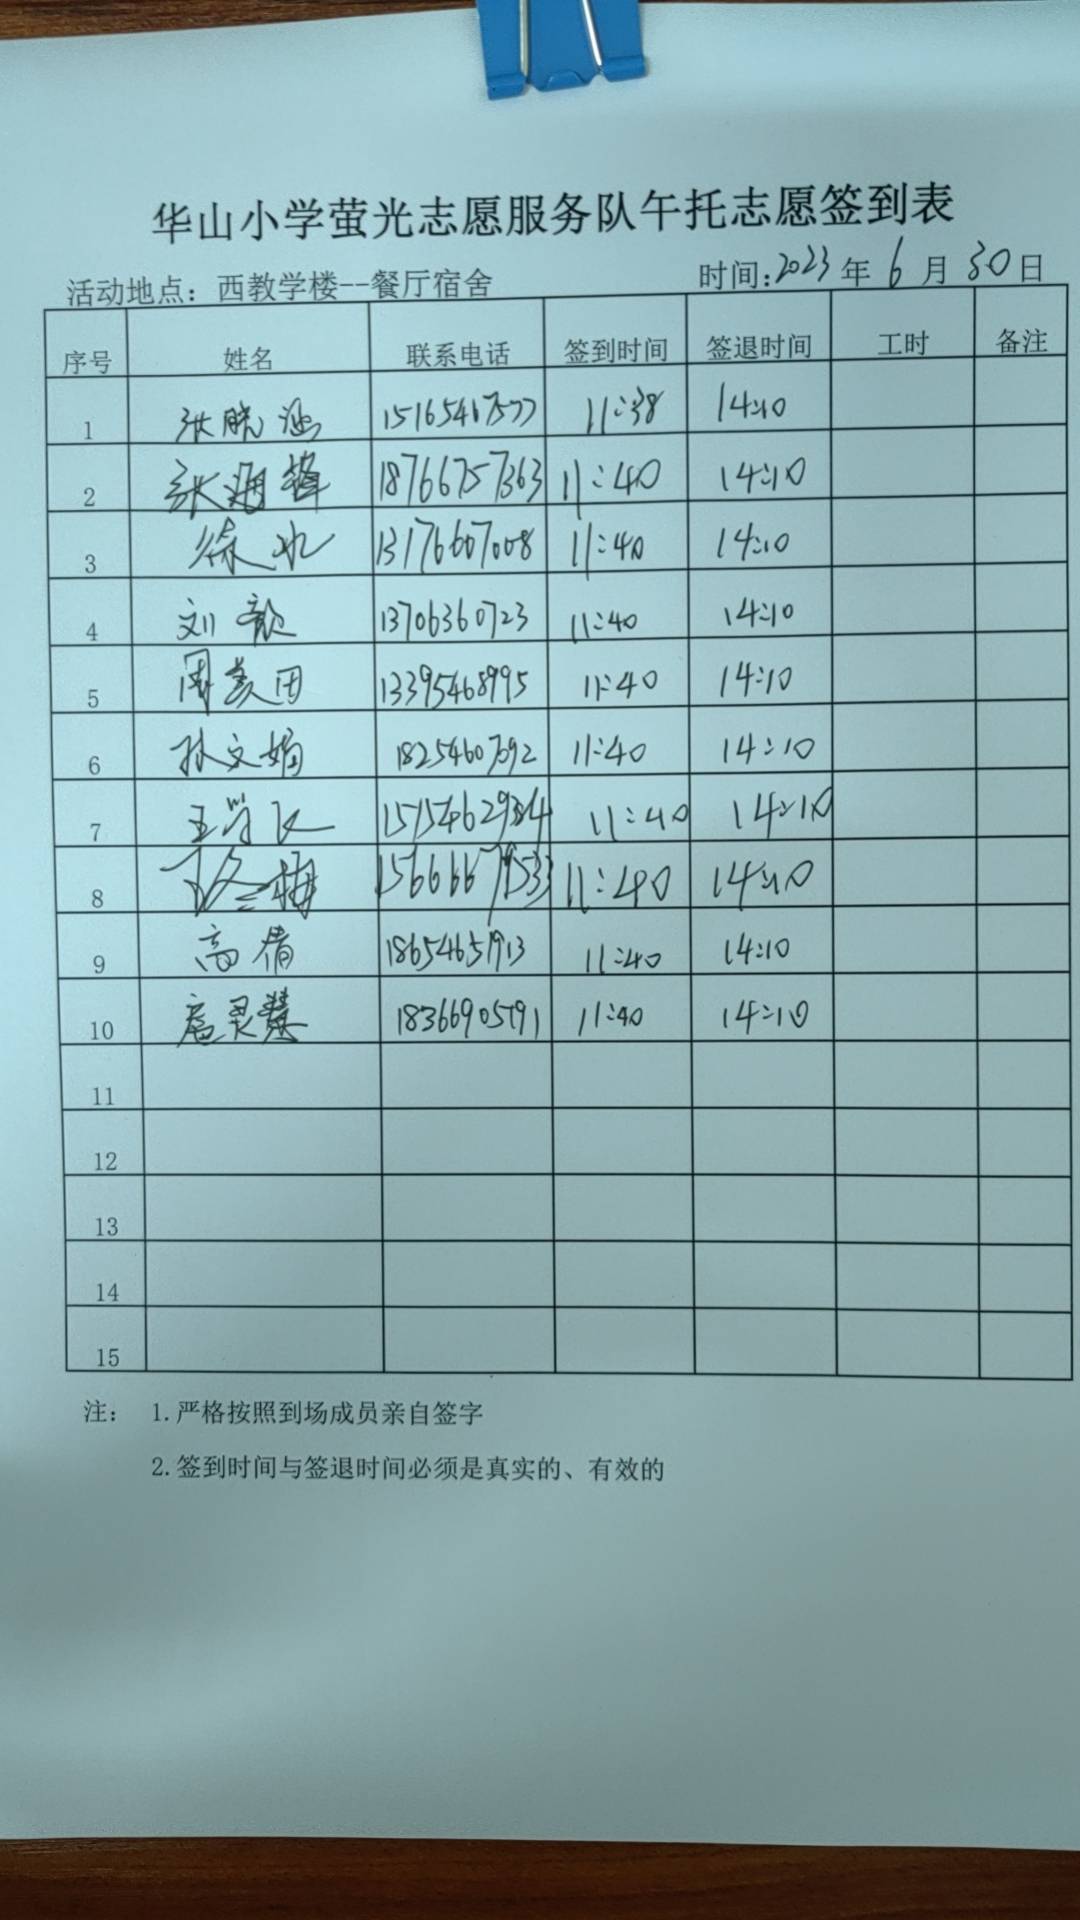 华山小学萤光志愿服务队午托志愿签到表
活动地点：西教学楼--餐厅宿舍 时间：2023年6月30日
序号 姓名 联系电话 签到时间 签退时间 工时 备注
1 张晓涵 15165467577 11:38 14:10
2 张海峰 18766757363 11:40 14:10
3 徐冰 13176607008 11:40 14:10
4 刘歆 13706360723 11:40 14:10
5 周美田 13395468995 11:40 14:10
6 孙文娟 18254607392 11:40 14:10
7 王学文 11:40 14:10
8 11:40 14:10
9 高倩 18654651913 11:40 14:10
10 扈灵慧 18366905791 11:40 14:10
11
12
13
14
15
注： 1.严格按照到场成员亲自签字
2.签到时间与签退时间必须是真实的、有效的